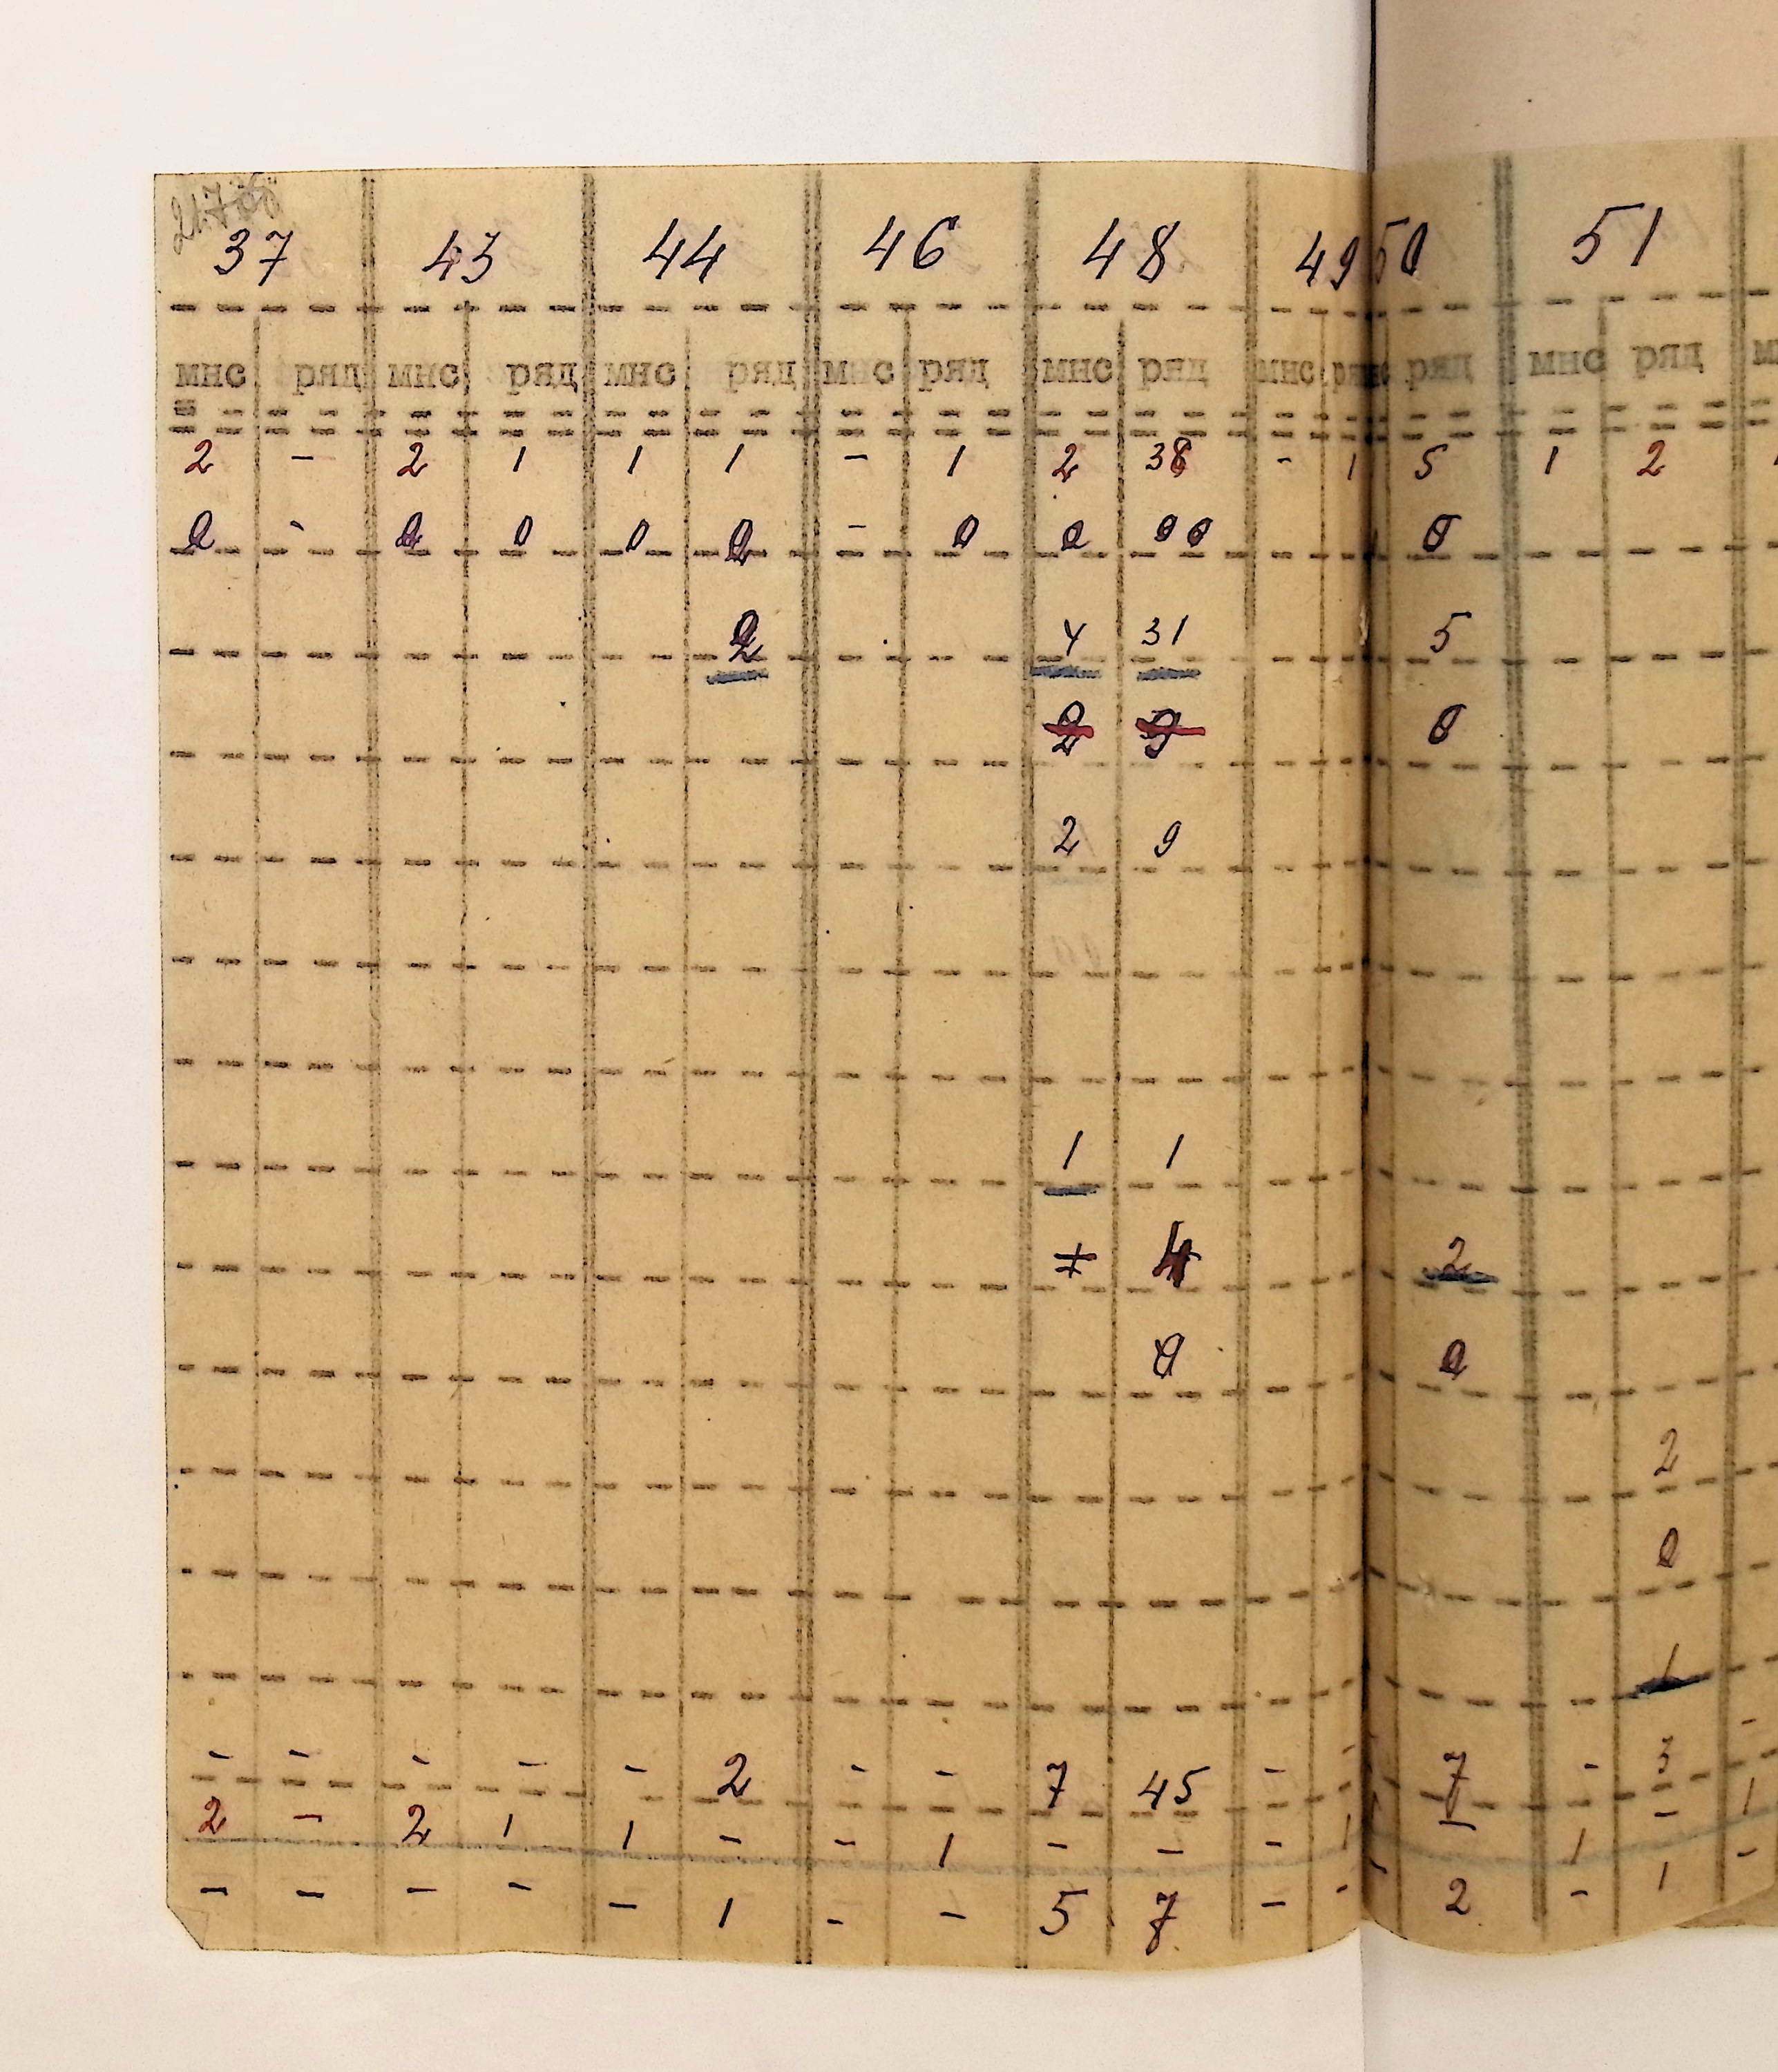 37 43 44 46 48 49 50 51
мнс ряд мнс ряд мнс ряд мнс ряд мнс ряд мнс ряд мнс ряд
2 - 2 1 1 1 - 1 2 38 - 1 5 1 2
0 - 0 0 0 0 - 0 0 00 0
2 4 31 5
2 9 0
2 9
1 1
1 4 2
0 0
2
0
1
- - - - - 2 - - 7 45 - - 7 - 3 -
2 - 2 1 1 - - 1 - - - 1 - 1 - 1
- - - - - 1 - - 5 7 - - - 2 - 1 -